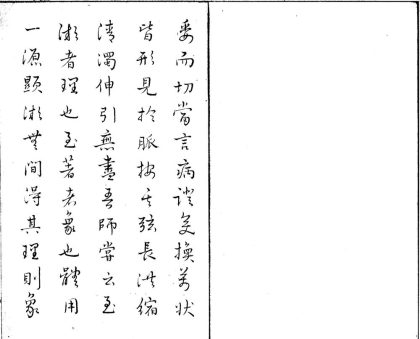 委而切當言病證變換萬狀
皆形見於脈按其弦長洪縮
清濁伸引無盡吾師嘗云至
微者理也至著者象也體用
一源顯微無間得其理則象